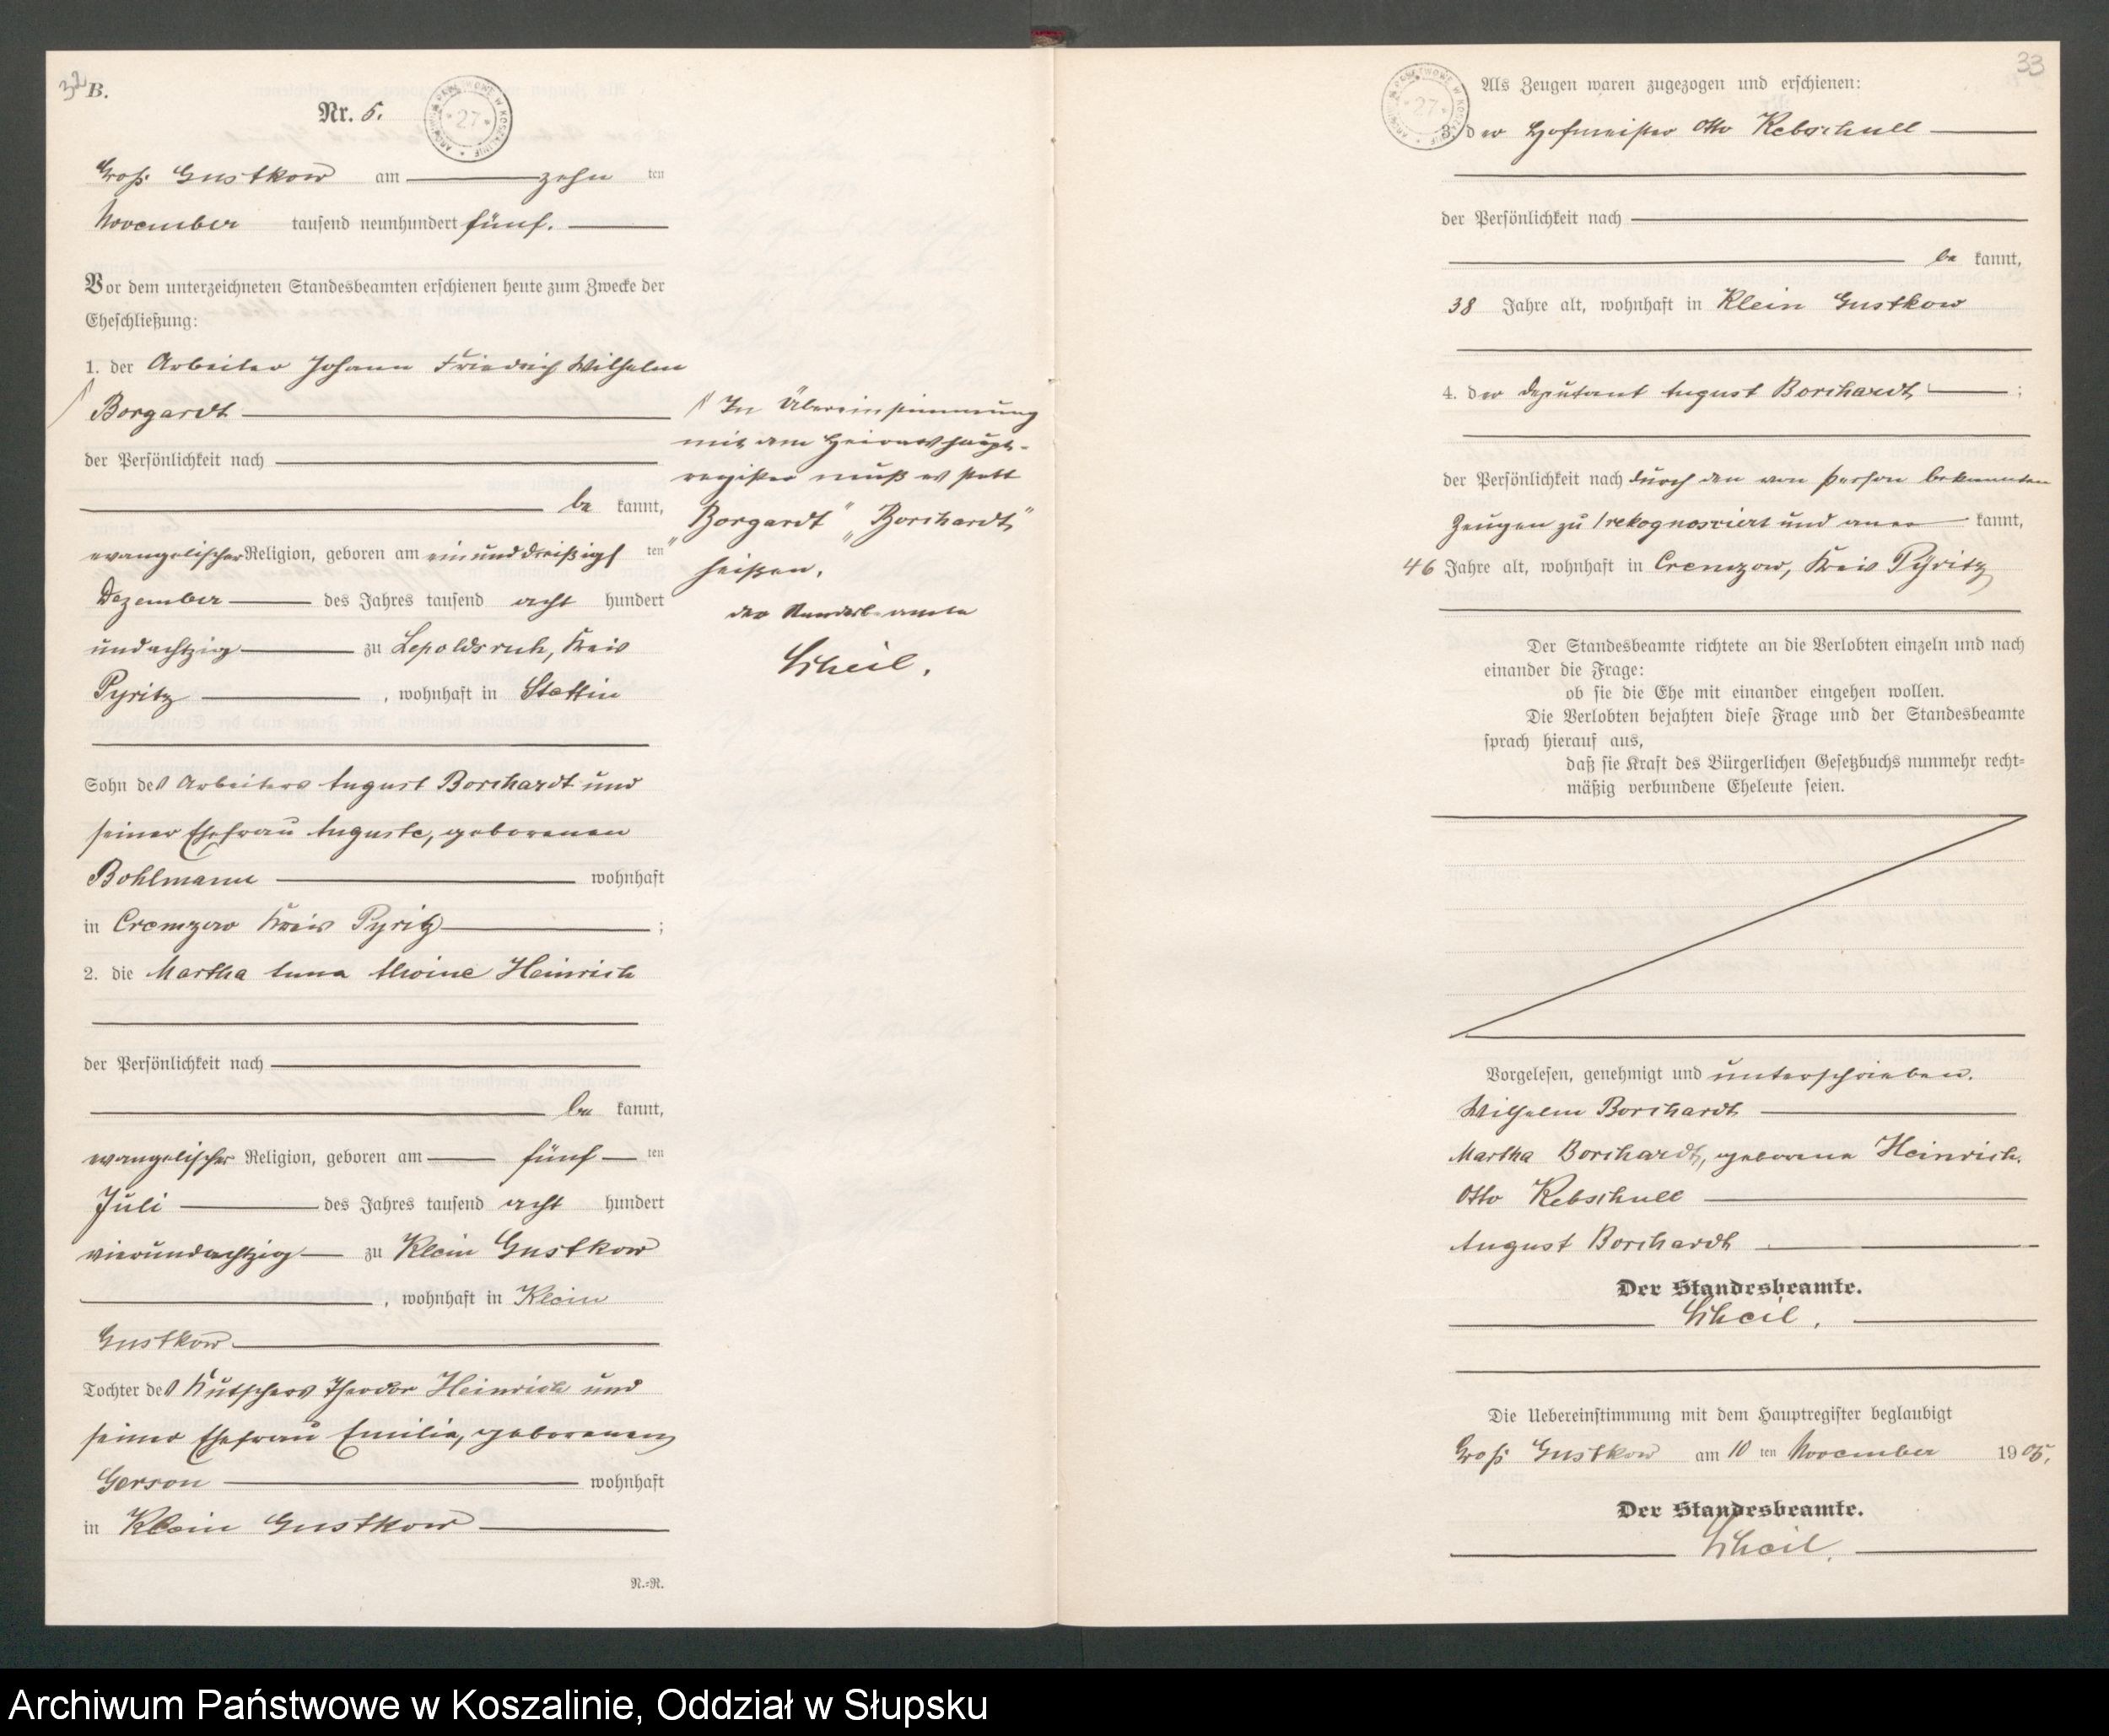 32
B.
Nr. 5.
ARCHIWUM PAŃSTWOWE W KOSZALINIE * 27 *
Groß Gustkow am zehn ten
November tausend neunhundert fünf.
Vor dem unterzeichneten Standesbeamten erschienen heute zum Zwecke der
Eheschließung:
1. der Arbeiter Johann Friedrich Wilhelm
Borgardt
der Persönlichkeit nach
be kannt,
evangelischer Religion, geboren am einunddreißigs ten
Dezember des Jahres tausend acht hundert
undachtzig zu Lepoldsruh, Kreis
Pyritz, wohnhaft in Stettin
Sohn des Arbeiters August Borchardt und
seiner Ehefrau Auguste, geborenen
Bohlmann wohnhaft
in Cremzow Kreis Pyritz;
2. die Martha Anna Alwine Heinrich
der Persönlichkeit nach
be kannt,
evangelischer Religion, geboren am fünf ten
Juli des Jahres tausend acht hundert
vierundachtzig zu Klein Gustkow
, wohnhaft in Klein
Gustkow
Tochter des Kutschers Theodor Heinrich und
seiner Ehefrau Emilie, geborenen
Gerson wohnhaft
in Klein Gustkow
N.=N.
In Übereinstimmung
mit dem Heiratshaupt-
register muß es statt
"Borgardt" "Borchardt"
heißen.
Der Standesbeamte
Scheil.
33
Als Zeugen waren zugezogen und erschienen:
ARCHIWUM PAŃSTWOWE W KOSZALINIE * 27 *
3. der Hofmeister Otto Rebschull
der Persönlichkeit nach
be kannt,
38 Jahre alt, wohnhaft in Klein Gustkow
4. der Deputant August Borchardt;
der Persönlichkeit nach durch den von Person bekannten
Zeugen zu 1 rekognosziert und aner kannt,
46 Jahre alt, wohnhaft in Cremzow, Kreis Pyritz
Der Standesbeamte richtete an die Verlobten einzeln und nach
einander die Frage:
ob sie die Ehe mit einander eingehen wollen.
Die Verlobten bejahten diese Frage und der Standesbeamte
sprach hierauf aus,
daß sie kraft des Bürgerlichen Gesetzbuchs nunmehr recht=
mäßig verbundene Eheleute seien.
Vorgelesen, genehmigt und unterschrieben.
Wilhelm Borchardt
Martha Borchardt, geborene Heinrich.
Otto Rebschull
August Borchardt
Der Standesbeamte.
Scheil.
Die Uebereinstimmung mit dem Hauptregister beglaubigt
Groß Gustkow am 10 ten November 1905.
Der Standesbeamte.
Scheil.
Archiwum Państwowe w Koszalinie, Oddział w Słupsku